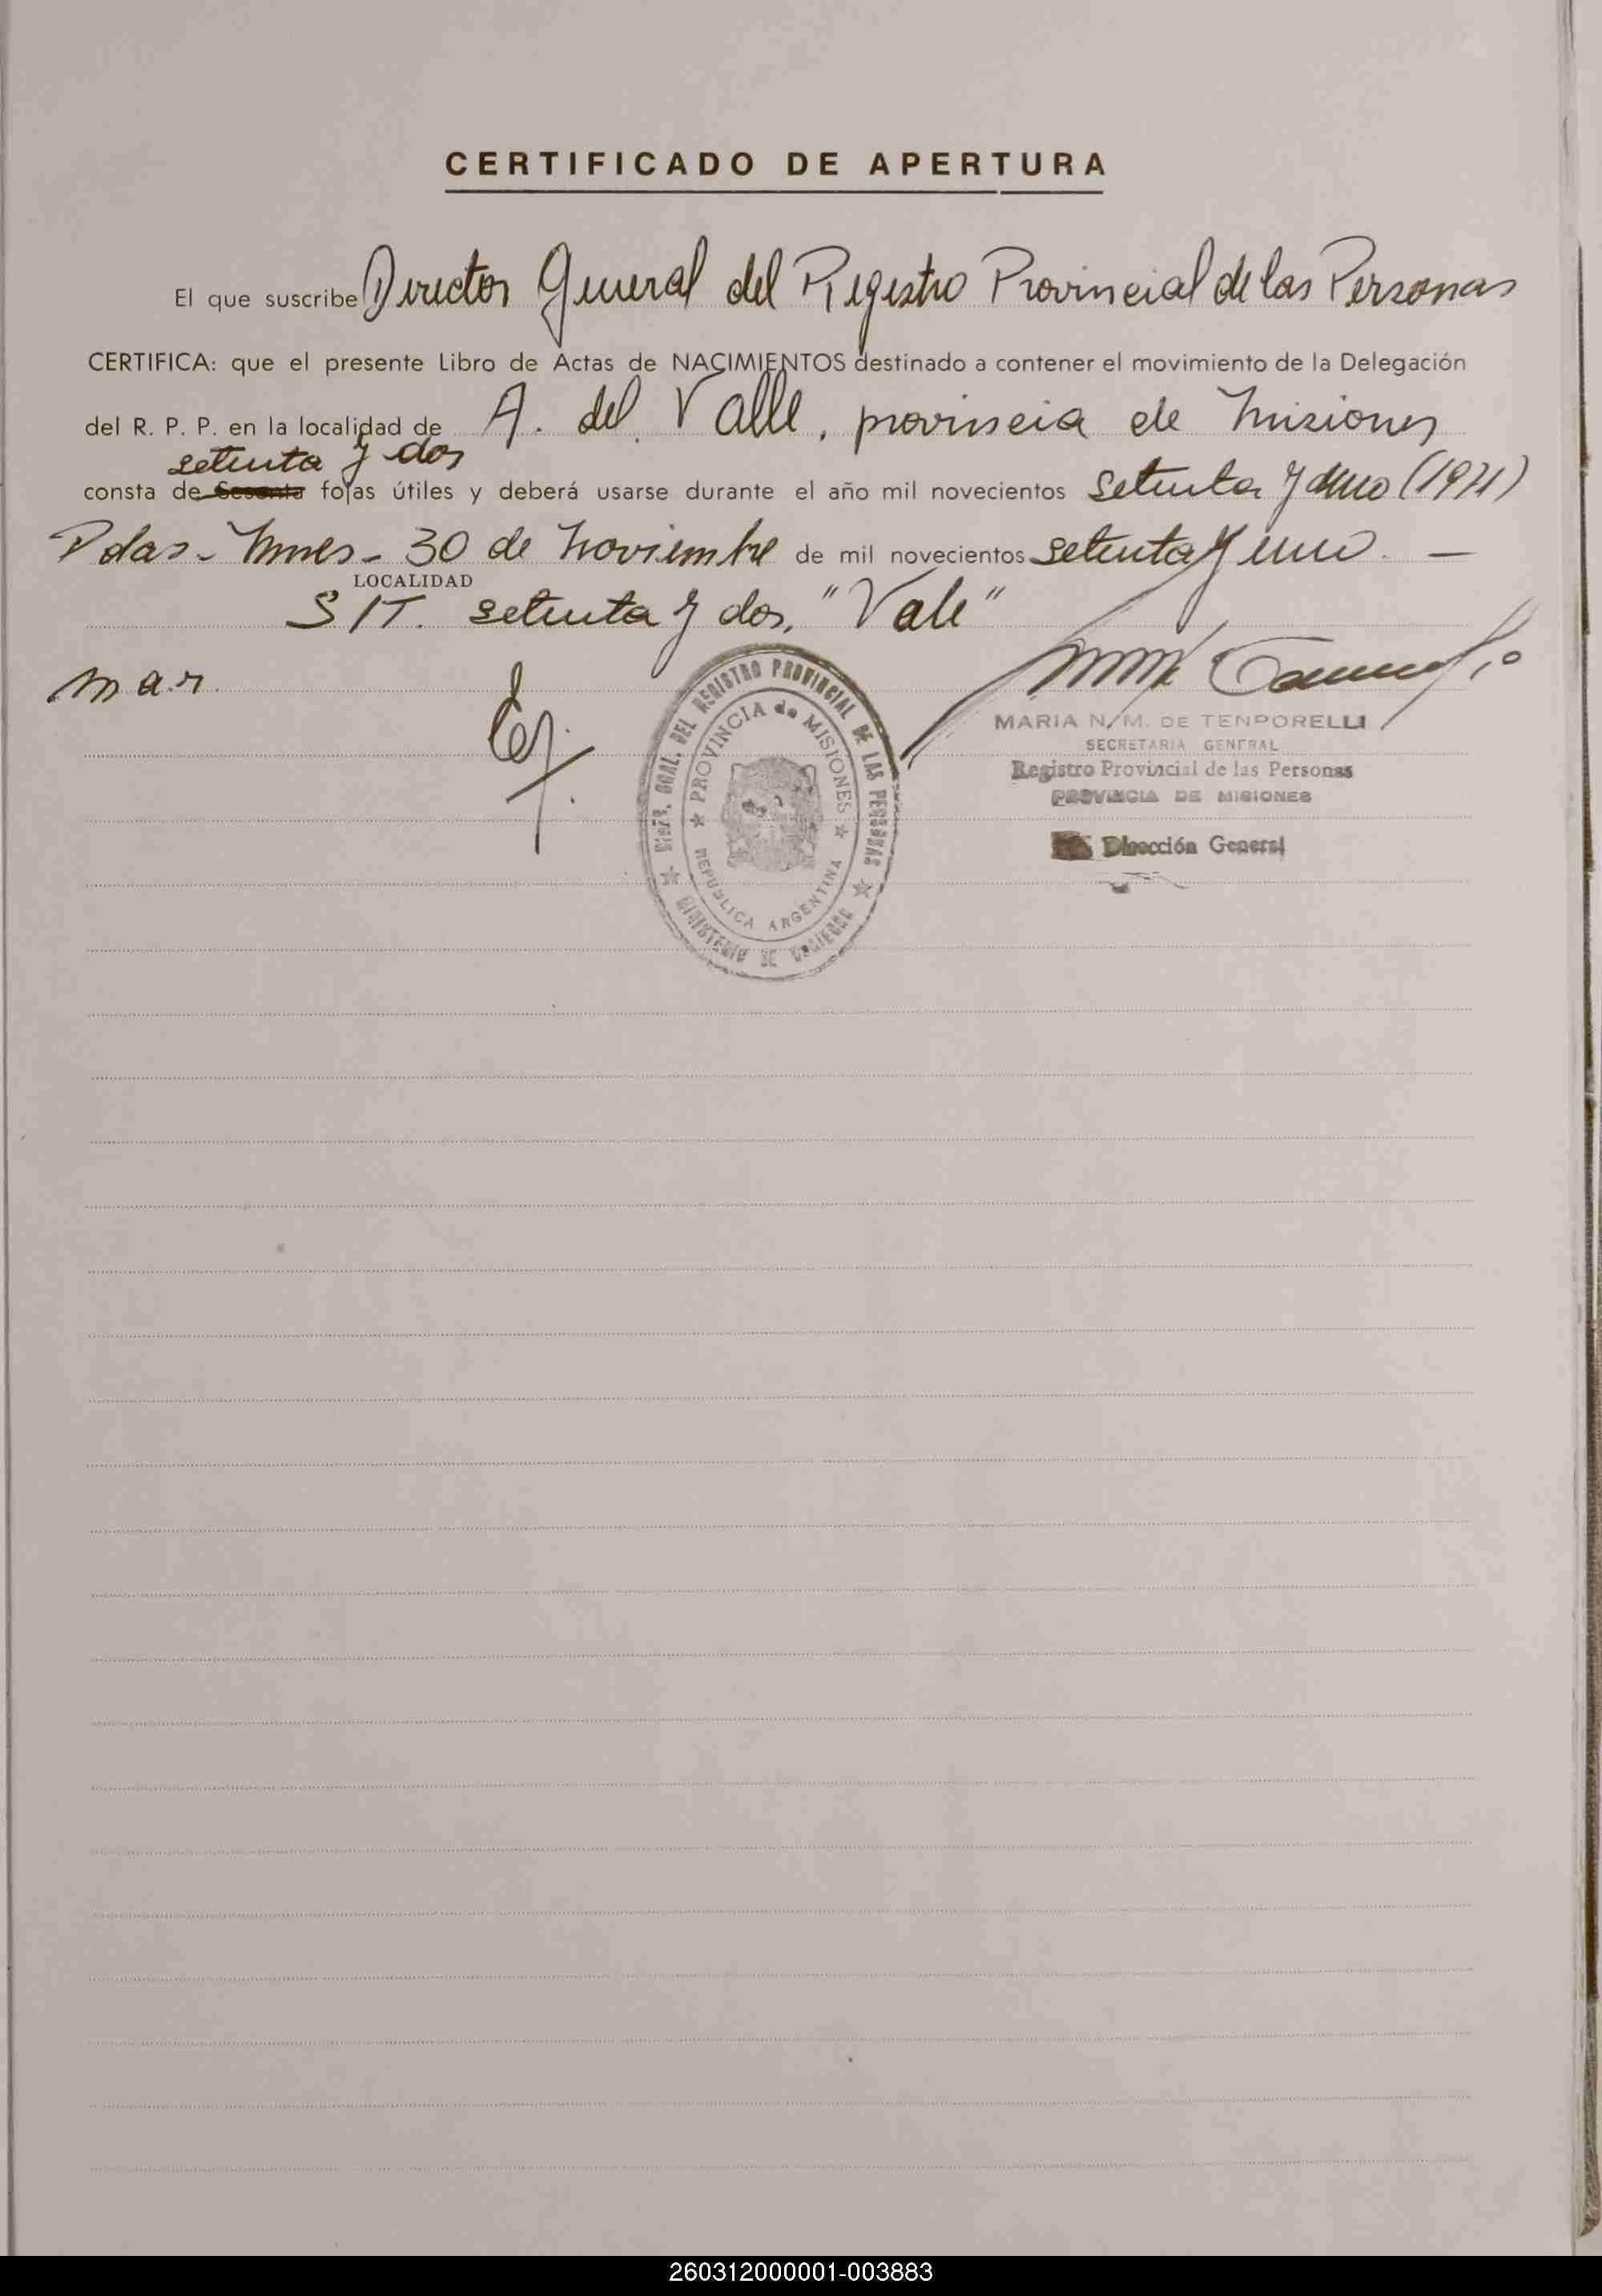 CERTIFICADO DE APERTURA
El que suscribe Director General del Registro Provincial de las Personas
CERTIFICA: que el presente Libro de Actas de NACIMIENTOS destinado a contener el movimiento de la Delegación
del R. P. P. en la localidad de A. del Valle, provincia de Misiones
setenta y dos
consta de Sesenta fojas útiles y deberá usarse durante el año mil novecientos setenta y uno (1971)
Pdas - Mnes - 30 de Noviembre de mil novecientos setenta y uno. —
LOCALIDAD
S/T. setenta y dos, "Vale"
m a.r.
DIREC. GRAL. DEL REGISTRO PROVINCIAL DE LAS PERSONAS
PROVINCIA de MISIONES
REPUBLICA ARGENTINA
MINISTERIO DE GOBIERNO
MARIA N. M. DE TENPORELLI
SECRETARIA GENERAL
Registro Provincial de las Personas
PROVINCIA DE MISIONES
Dirección General
260312000001-003883